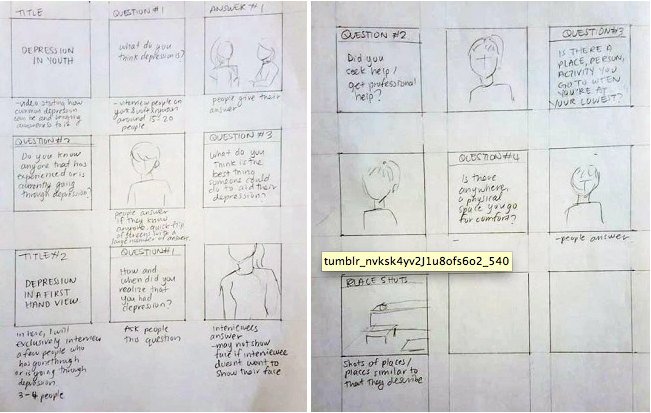 TITLE
DEPRESSION
IN YOUTH
-video stating how
common depression
can be and bringing
awareness to it
QUESTION #1
What do you
think depression is?
-interview people on
around 15-20
people
ANSWER #1
people give their
answer
QUESTION #2
Do you know
anyone that has
experienced or is
currently going
through depression?
people answer
if they know
anyone. quick flip
of screens with a
large number of answers
QUESTION #3
What do you
think is the
best thing
someone could
do to aid their
depression?
TITLE #2
DEPRESSION
IN A FIRST
HAND VIEW
in here, I will
exclusively interview
a few people who
has gone through
or is going through
depression
3-4 people
QUESTION #1
How and
when did you
realize that
you had
depression?
Ask people
this question
Interviewees
answer
-may not show
face if interviewee
doesn't want to
show their face
QUESTION #2
Did you
seek help /
get professional
help?
QUESTION #3
IS THERE A
PLACE, PERSON,
ACTIVITY YOU
GO TO WHEN
YOU'RE AT
YOUR LOWEST?
QUESTION #4
Is there
anywhere
a physical
space you go
for comfort?
-people answer
tumblr_nvksk4yv2J1u8ofs6o2_540
PLACE SHOTS
Shots of places/
places similar to
that they describe